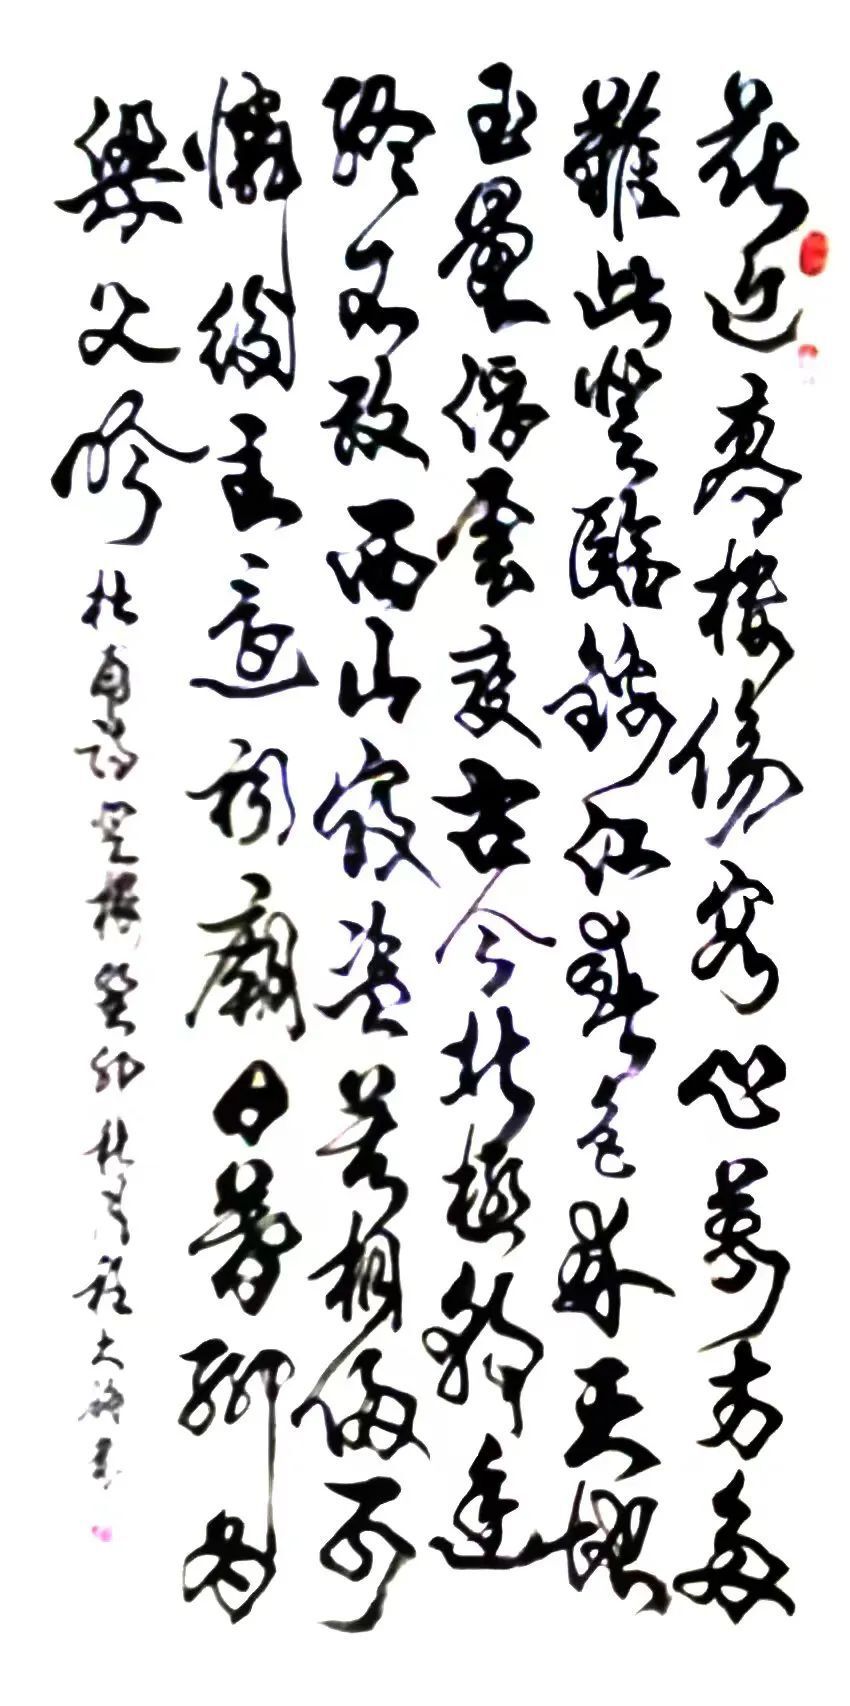 花近高樓傷客心萬方多
難此登臨錦江春色來天地
玉壘浮雲變古今北極朝廷
終不改西山寇盜莫相侵可
憐後主還祠廟日暮聊為
梁父吟 杜甫詩登樓癸卯秋月